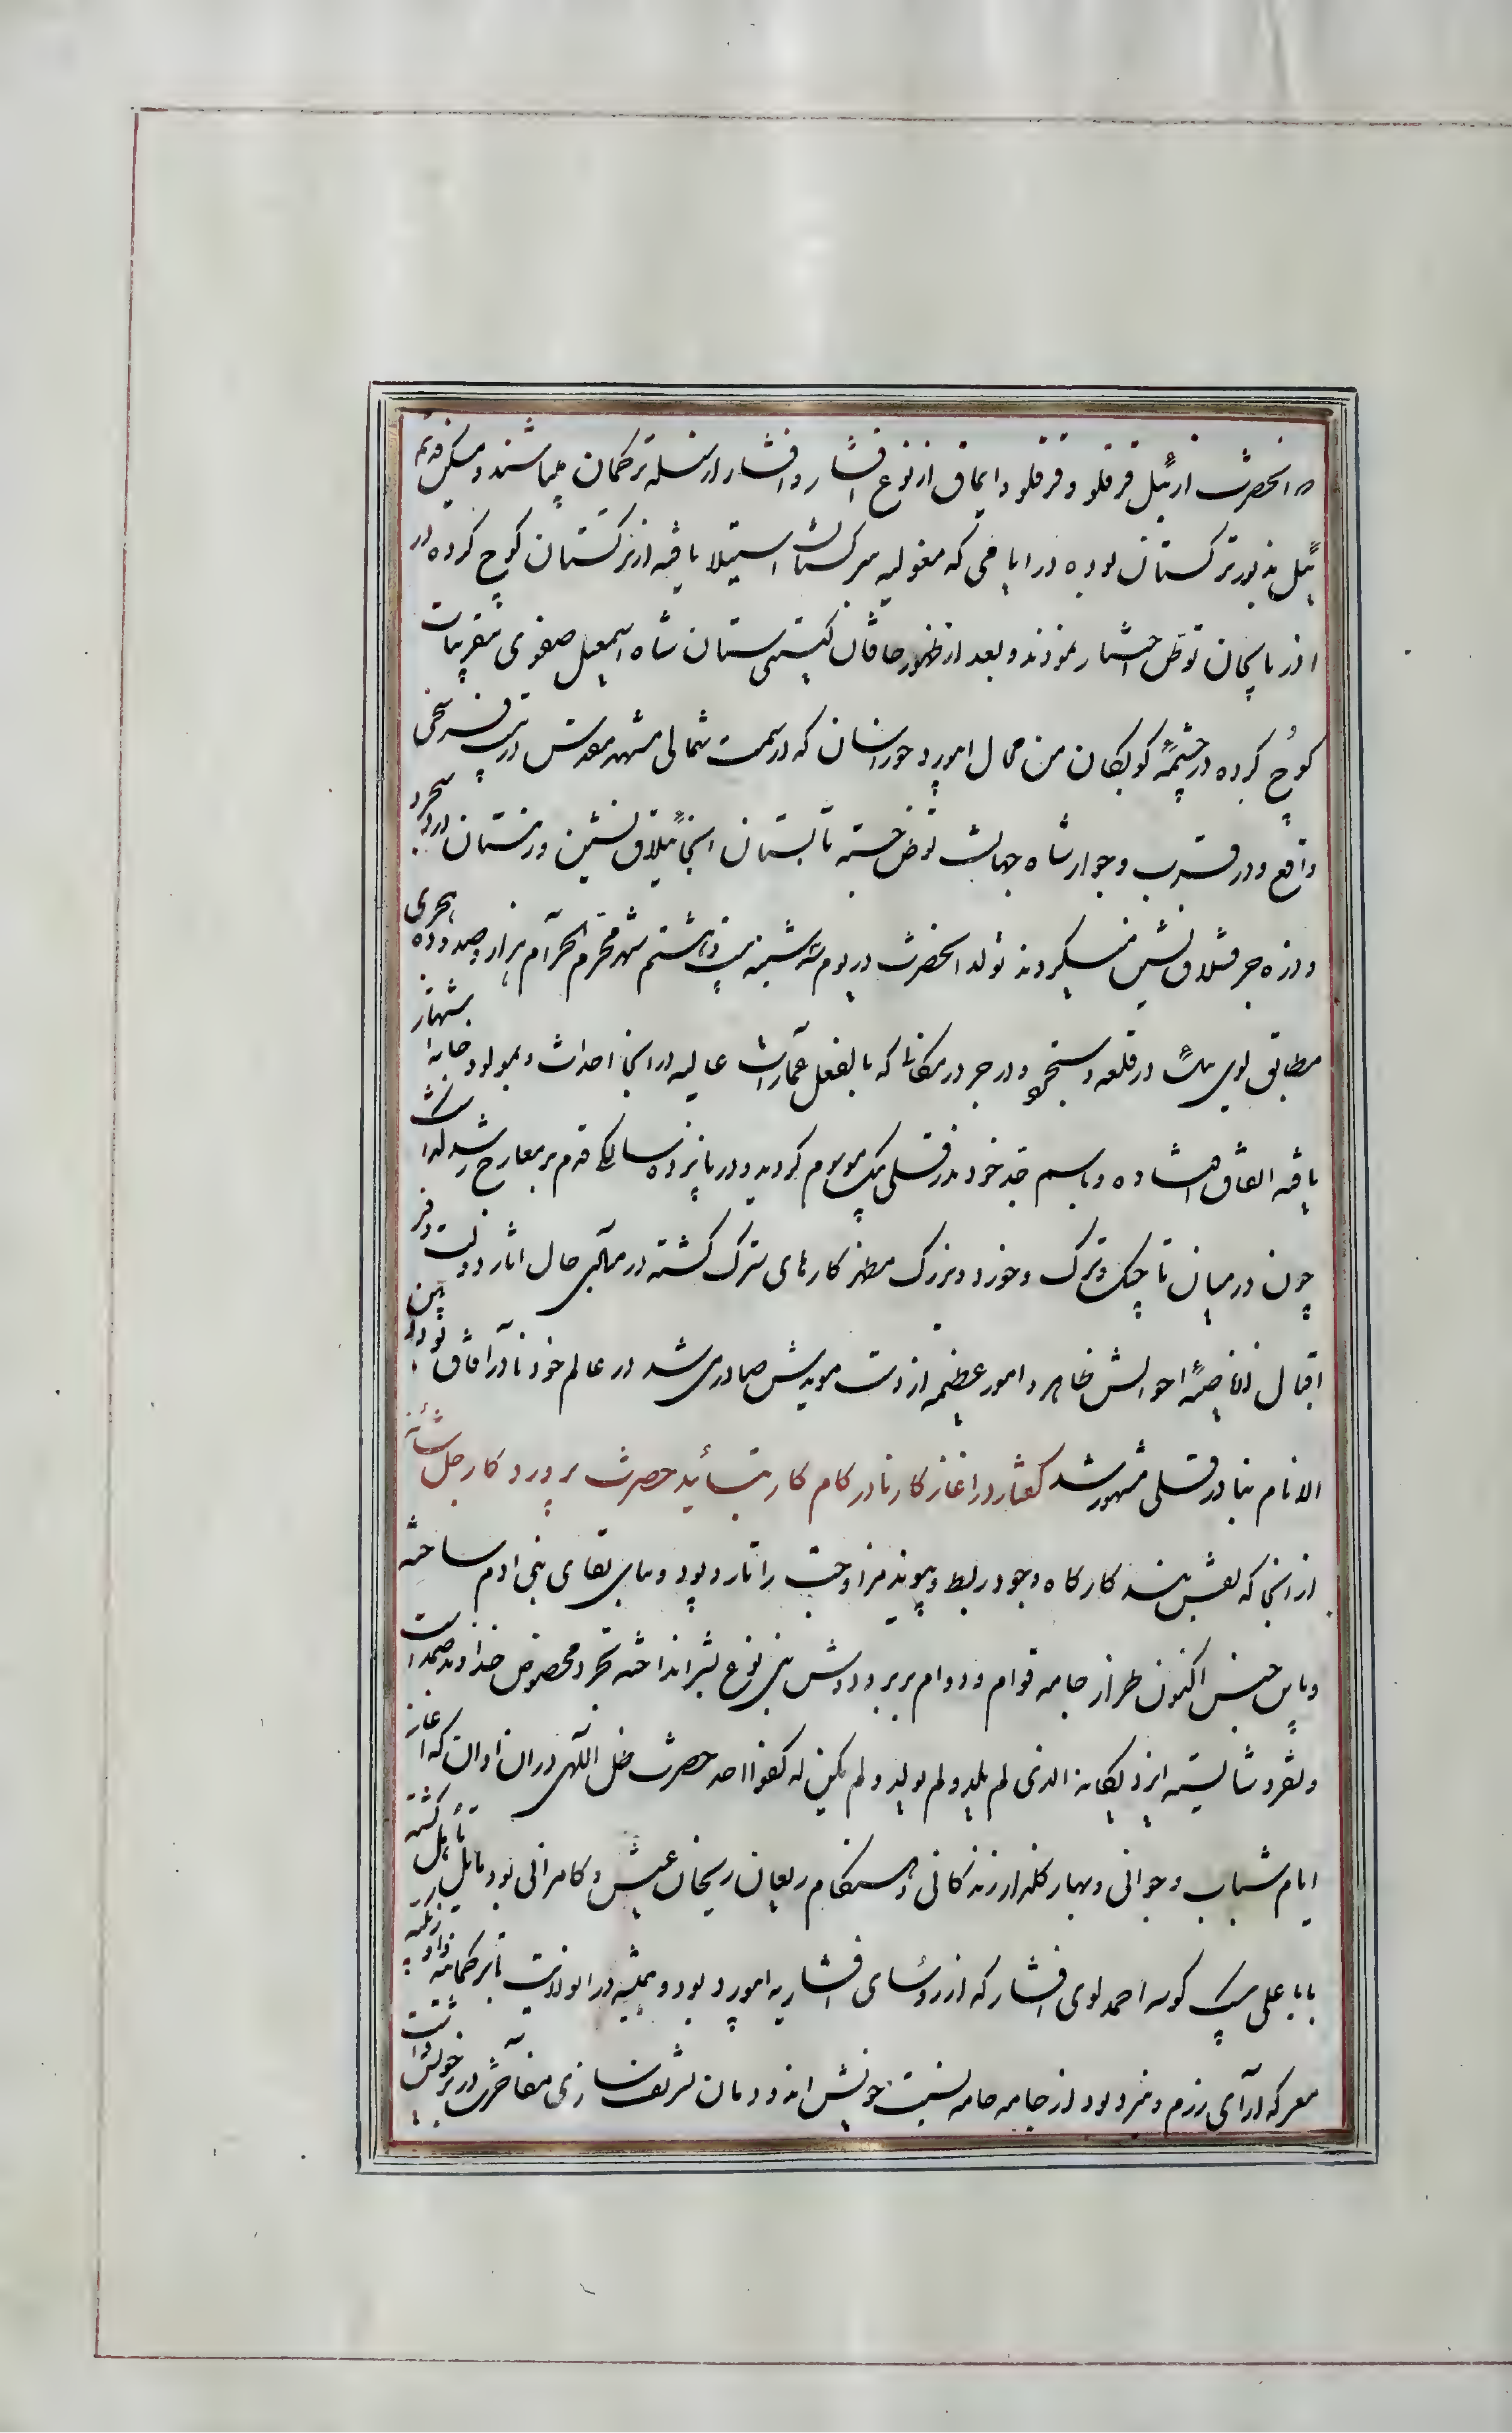 و آنحضرت از ایل قرقلو و قرقلو و ایماق از نوع افشار و افشار از سلسله ترکمان میباشند و مسکن قدیم
ایل مذبور ترکستان بوده در ایامی که مغولیه بر ترکستان استیلا یافته از ترکستان کوچ کرده در
اذربایجان توطن اختیار نمودند و بعد از ظهور خاقان گیتی ستان شاه اسمعیل صفوی بتقریبات
کوچ کرده در چشمهٔ کوبکان من محال ابیورد خوراسان که در سمت شمالی مشهد مقدس در بیست فرسخی
واقع و در قرب و جوار شاه جهانست توطن جسته تابستان انجا ییلاق نشین و زمستان در دستجرد
و دره جز قشلاق نشین میکردند تولد انحضرت در یوم شنبه بیست و هشتم شهر محرم الحرام هزار و صد و ده هجری
مطابق لوی ئیل در قلعه دستجرد دره جز در مکانی که بالفعل عمارات عالیه در انجا احداث و بمولود خانه اشتهار
یافته اتفاق افتاده و باسم جد خود ندر قلی بیک موسوم گردید و در پانزده سالگی قدم بر معارج رشد گذاشت
چون در میان تاجیک و ترک و خورد و بزرگ مظهر کارهای سترک گشته در مبادی حال اثار دولت و فر
اقبال از ناصیهٔ احوالش ظاهر و امور عظیمه از دست مویدش صادر می شد در عالم خود نادر آفاق بود بین
الانام بنادر قلی مشهور شد گفتار در اغاز کار نادر کام کار بتأیید حضرت پروردکار جل شأنه
از انجا که نقش بند کارکاه وجود ربط و پیوند مزاوجت را تار و پود دیبای بقای بنی ادم ساخته
و باین جنس اکنون طراز جامه قوام و دوام بر بر و دوش بنی نوع بشر انداخته تجرد مخصوص خداوند صمد است
و تفرد شایسته ایزد یکانه الذی لم یلد و لم یولد و لم یکن له کفوا احد حضرت ظل اللهی در ان اوان که اغاز
ایام شباب و جوانی و بهار کلزار زندکانی و هنکام ریعان ریحان عیش و کامرانی بود مایل تأهل کشته
بابا علی بیک کوسه احمدلوی افشار که از روسای افشاریه ابیورد بود و همیشه در انولایت با ترکمانیه
معرکه آرای رزم و نبرد بود از جامه خانه نسبت خویش ان دودمان شریف ساز مفاخرت در بر خویش